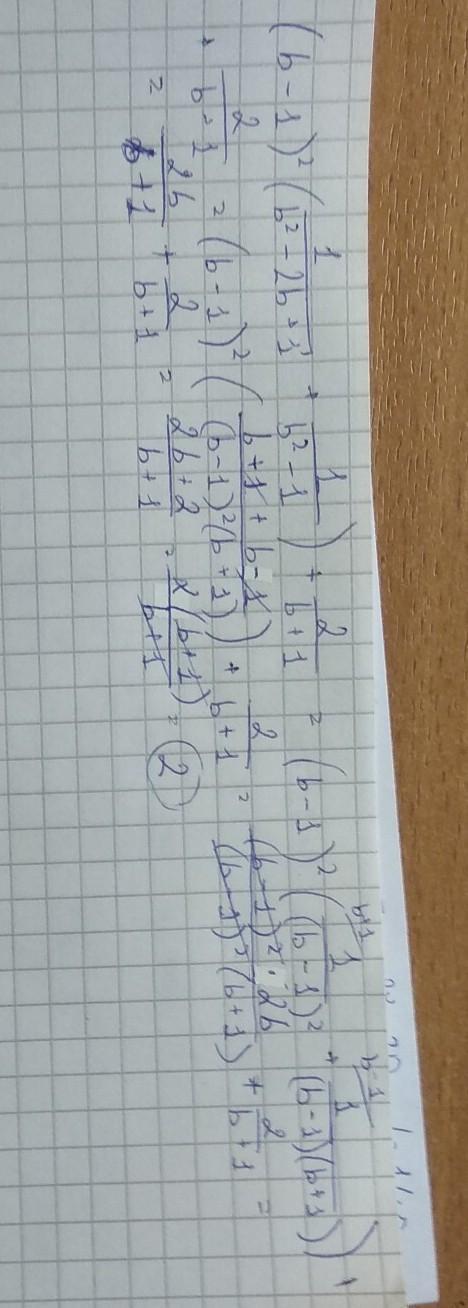 (b - 1)² (1/(b² - 2b + 1) + 1/(b² - 1)) + 2/(b + 1) = (b - 1)² (1/(b - 1)² ^(b+1) + 1/((b - 1)(b + 1)) ^(b-1)) +
+ 2/(b - 1) = (b - 1)² ((b + 1 + b - 1)/((b - 1)²(b + 1))) + 2/(b + 1) = ((b - 1)² · 2b)/((b - 1)²(b + 1)) + 2/(b + 1) =
= 2b/(b + 1) + 2/(b + 1) = (2b + 2)/(b + 1) = 2(b + 1)/(b + 1) = 2